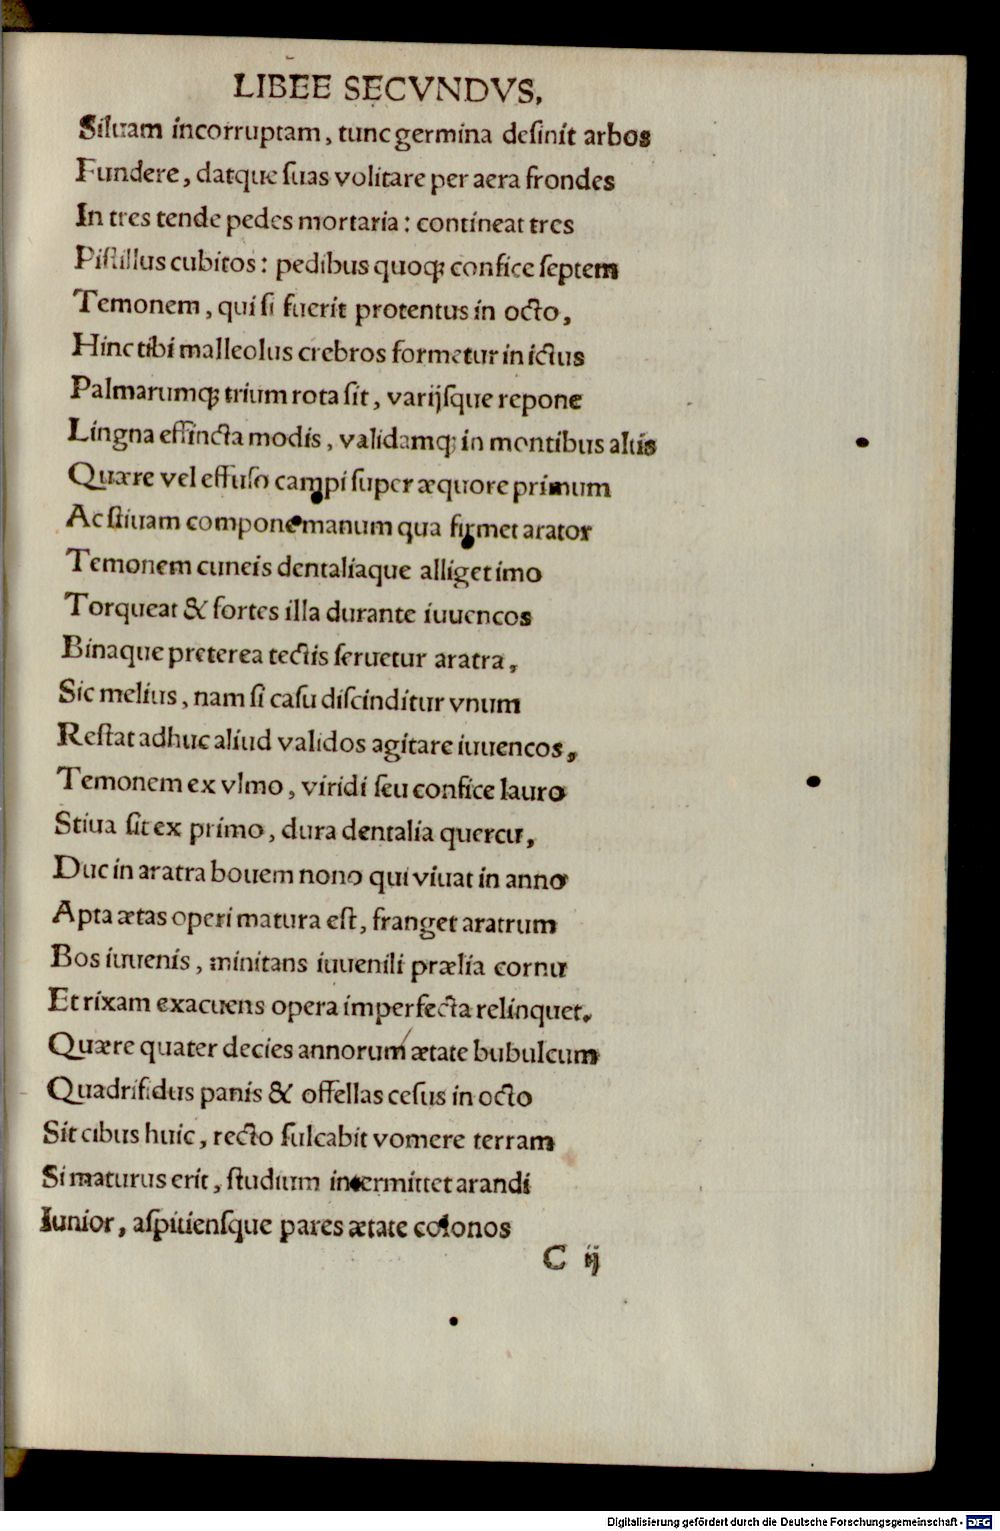 LIBEE SECVNDVS,
Siluam incorruptam, tunc germina desinit arbos
Fundere, datque suas volitare per aera frondes
In tres tende pedes mortaria: contineat tres
Pistillus cubitos: pedibus quoq; confice septem
Temonem, qui si fuerit protentus in octo,
Hinc tibi malleolus crebros formetur in ictus
Palmarumq; trium rota sit, varijsque repone
Lingna effincta modis, validamq; in montibus altis
Quære vel effuso campi super æquore primum
Ac stiuam compone manum qua firmet arator
Temonem cuneis dentaliaque alliget imo
Torqueat & fortes illa durante iuuencos
Binaque preterea tectis seruetur aratra,
Sic melius, nam si casu discinditur vnum
Restat adhuc aliud validos agitare iuuencos,
Temonem ex vlmo, viridi seu confice lauro
Stiua sit ex primo, dura dentalia quercu,
Duc in aratra bouem nono qui viuat in anno
Apta ætas operi matura est, franget aratrum
Bos iuuenis, minitans iuuenili prælia cornu
Et rixam exacuens opera imperfecta relinquet.
Quære quater decies annorum ætate bubulcum
Quadrifidus panis & offellas cesus in octo
Sit cibus huic, recto sulcabit vomere terram
Si maturus erit, studium intermittet arandi
Iunior, aspitiensque pares ætate colonos
C ij
Digitalisierung gefördert durch die Deutsche Forschungsgemeinschaft - DFG